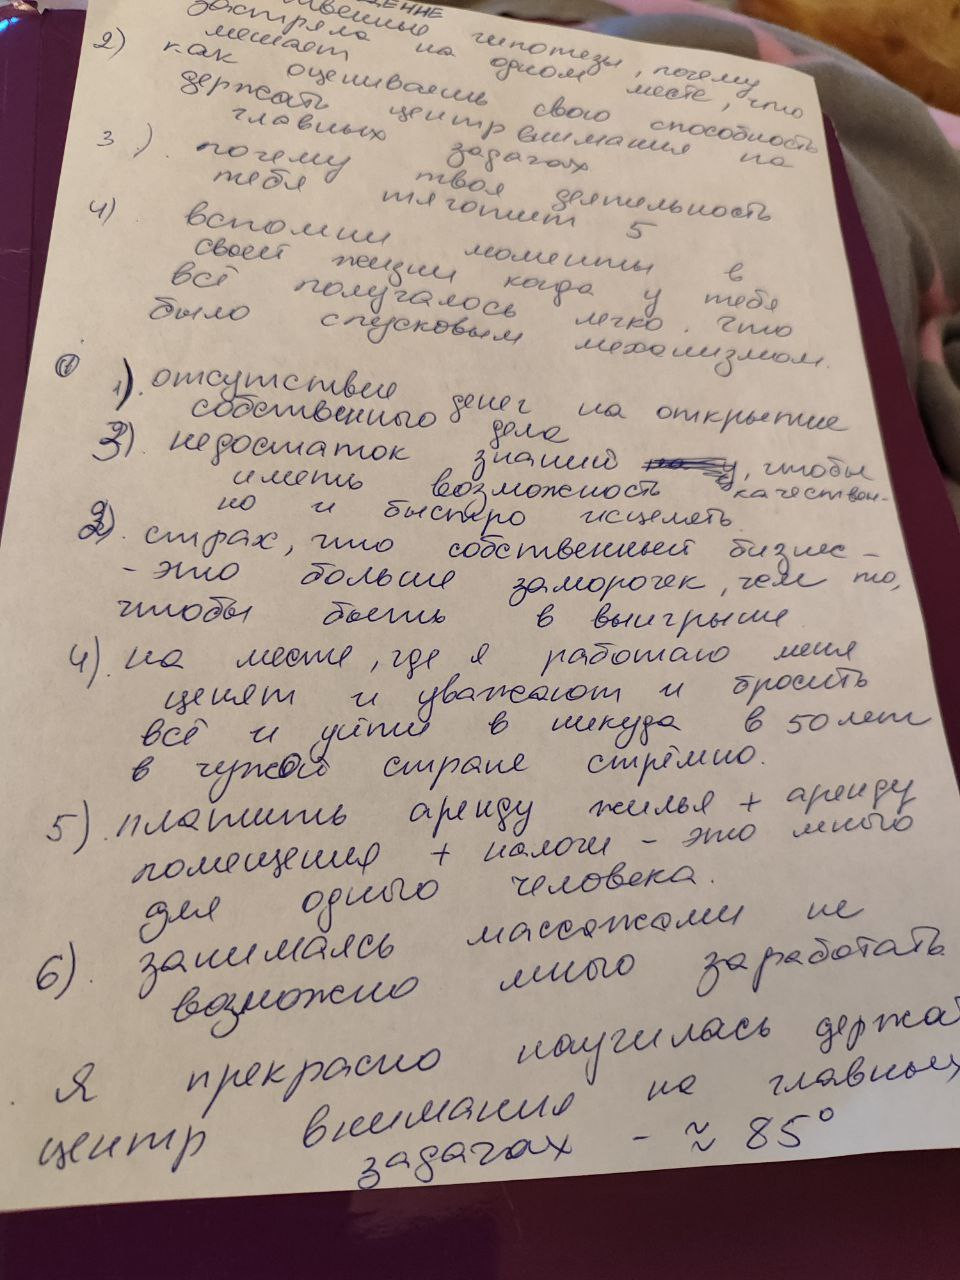 ственные гипотезы, почему
застряла на одном месте, что
мешает
2) как оцениваешь свою способность
держать центр внимания на
главных задачах
3). почему твоя деятельность
тебя тяготит 5
4) вспомни моменты в
своей жизни когда у тебя
всё получалось легко. что
было спусковым механизмом.
1 1). отсутствие денег на открытие
собственного дела
3) недостаток знаний, чтобы
иметь возможность качествен-
но и быстро исцелять.
2). страх, что собственный бизнес -
- это больше заморочек, чем то,
чтобы быть в выигрыше
4). на месте, где я работаю меня
ценят и уважают и бросить
всё и уйти в никуда в 50 лет
в чужой стране стрёмно.
5). платить аренду жилья + аренду
помещения + налоги - это много
для одного человека.
6). занимаясь массажами не
возможно много заработать
. Я прекрасно научилась держа
центр внимания на главных
задачах - ≈ 85°